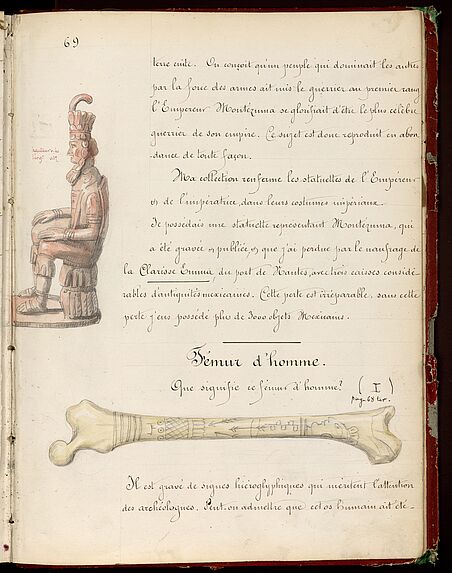 69
terre cuite. On conçoit qu'un peuple qui dominait les autres
par la force des armes ait mis le guerrier au premier rang
l'Empereur Montézuma se glorifiait d'être le plus célèbre
guerrier de son empire. Ce sujet est donc reproduit en abon
dance de toute façon.
Ma collection renferme les statuettes de l'Empereur
et de l'impératrice, dans leurs costumes impériaux.
Je possédais une statuette représentant Montézuma, qui
a été gravée et publiée, et que j'ai perdue par le naufrage de
la Clarisse Emma, du port de Nantes, avec trois caisses considé-
rables d'antiquités mexicaines. Cette perte est irréparable, sans cette
perte j'eus possédé plus de 3000 objets Mexicains.
Fémur d'homme.
Que signifie ce fémur d'homme? (I)
pag. 68 ter.
Il est gravé de signes hiéroglyphiques qui méritent l'attention
des archéologues. Peut-on admettre que cet os humain ait été-